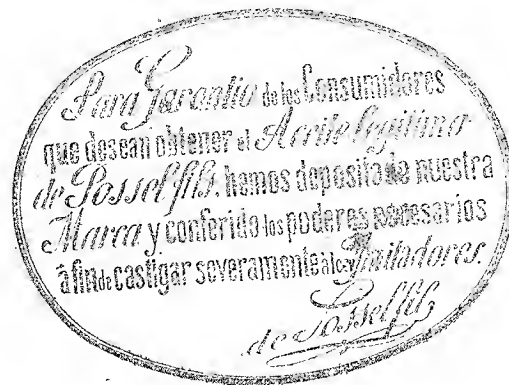 Para Garantia de los Consumidores
que desean obtener el Aceite legitimo
de Possel fils. hemos depositado nuestra
Marca y conferido los poderes necesarios
á fin de castigar severamente á los Imitadores.
de Possel fils